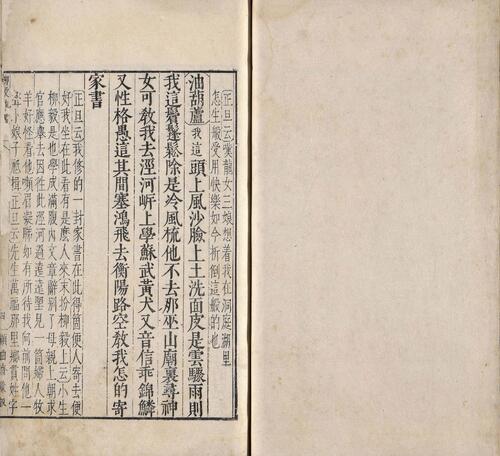 正旦云嗨龍女三娘想着我在洞庭湖里
怎生般受用快樂如今折倒這般的也
油葫蘆我這頭上風沙臉上土洗面皮是雲驟雨則
我這鬢鬔鬆除是冷風梳他不去那巫山廟裏尋神
女可教我去涇河岍上學蘇武黃犬又音信乖錦鱗
又性格愚這其間塞鴻飛去衡陽路空教我怎的寄
家書
正旦云我修的一封家書在此得箇便人寄去便
好我坐在此看有是麽人來末扮柳毅上云小生
柳毅是也學成滿腹內文章辭別了母親上朝求
官應舉去因往此涇河過遠遠望見一箇婦人牧
羊好怪看他嚬眉㦖睇如有所待我向前問他一
小娘子祗揖正旦云先生萬福那里鄉貫姓字